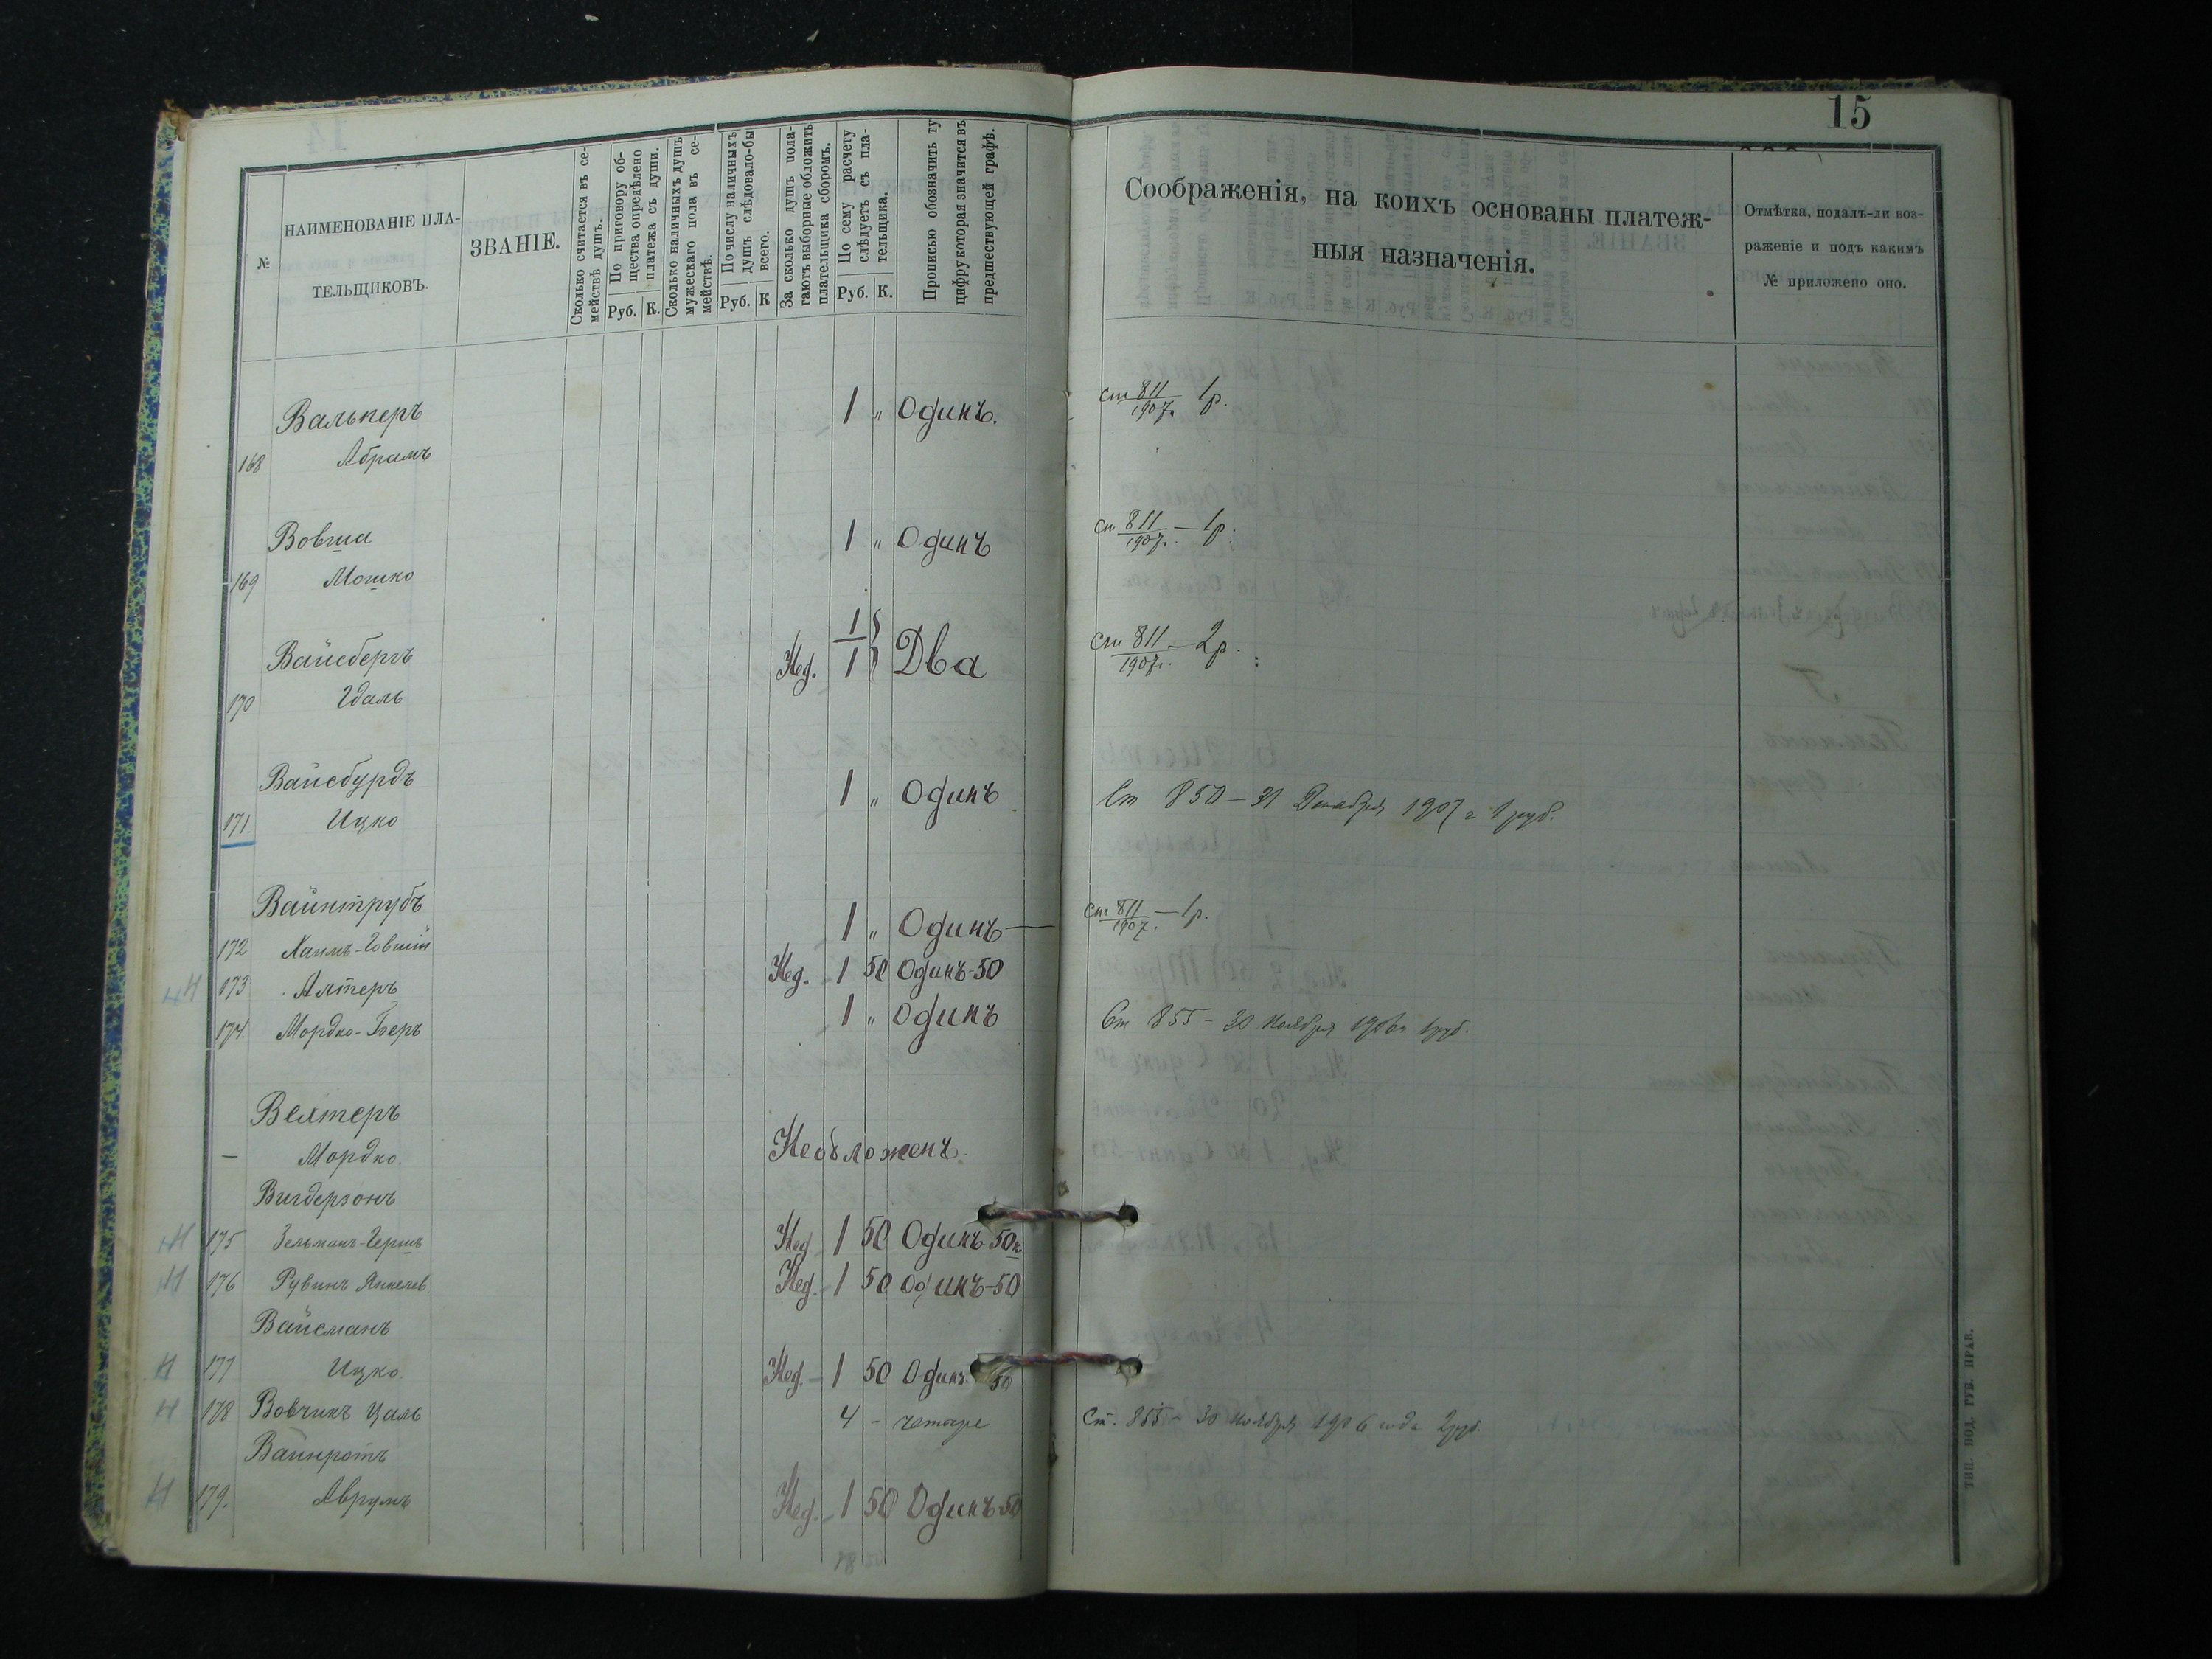 15
№
НАИМЕНОВАНІЕ ПЛА-
ТЕЛЬЩИКОВЪ.
ЗВАНІЕ.
Сколько считается въ се-
мействѣ душъ.
По приговору об-
щества опредѣлено
платежа съ души.
Руб. К.
Сколько наличныхъ душъ
мужескаго пола въ се-
мействѣ.
По числу наличныхъ
душъ слѣдовало-бы
всего.
Руб. К
За сколько душъ пола-
гаютъ выборные обложить
плательщика сборомъ.
По сему расчету
слѣдуетъ съ пла-
тельщика.
Руб. К.
Прописью обозначить ту
цифру которая значится въ
предшествующей графѣ.
Соображенія, на коихъ основаны платеж-
ныя назначенія.
Отмѣтка, подалъ-ли воз-
раженіе и подъ какимъ
№ приложено оно.
Вальперъ 1 " Одинъ. ст 811/1907г. 1р.
168 Абрамъ
Вовша 1 " Одинъ ст. 811/1907г. — 1р.
169 Мошко
Вайсбергъ Нед. 1 1 Два ст 811/1907г. — 2р.
170 Гдаль
Вайсбурдъ 1 " Одинъ Ст 850 — 31 Декабря 1907 г 1 руб.
171. Ицко
Вайнтрубъ
172 Хаимъ-Іовшій 1 " Одинъ — ст. 811/1907г. — 1р.
Н 173 Алтеръ Нед. - 1 50 Одинъ-50
174. Мордко-Беръ 1 " Одинъ Ст 855 - 30 Ноября 1906г. 1руб.
Велтеръ
— Мордко. Необложенъ.
Вигдерзонъ
Н 175 Зельманъ-Гершъ Нед - 1 50 Одинъ-50к.
Н 176 Рувинъ Янкелев Нед. - 1 50 Одинъ-50
Вайсманъ
Н 177 Ицко. Нед. - 1 50 Одинъ. 50
Н 178 Вовчикъ Цаль 4 - четыре Ст. 855 - 30 Ноября 1906 года 2руб.
Вайнротъ
Н 179. Аврумъ Нед. - 1 50 Одинъ-50
18
ТИП. ПОД. ГУБ. ПРАВ.